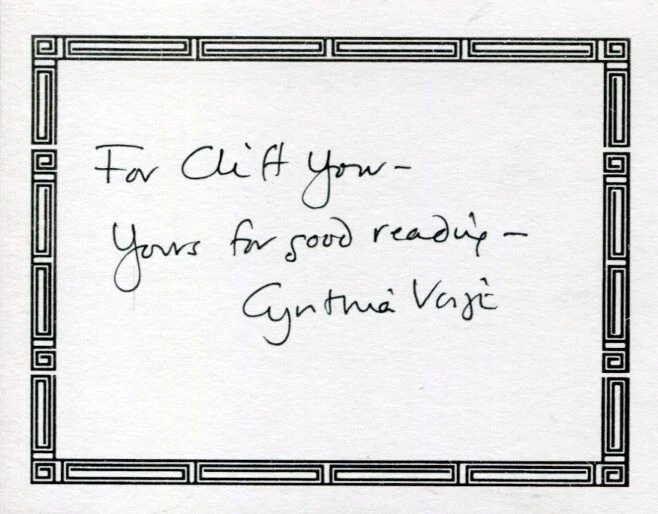 For Clift Yow –
Yours for good reading –
Cynthia Voigt